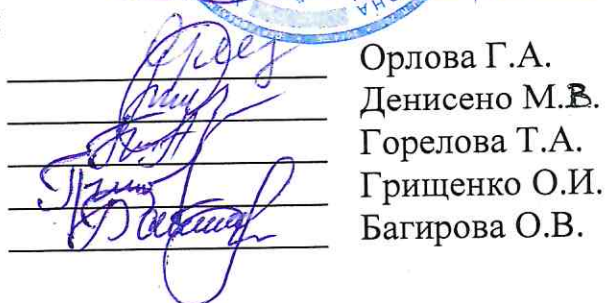 Орлова Г.А.
Денисено М.В.
Горелова Т.А.
Грищенко О.И.
Багирова О.В.